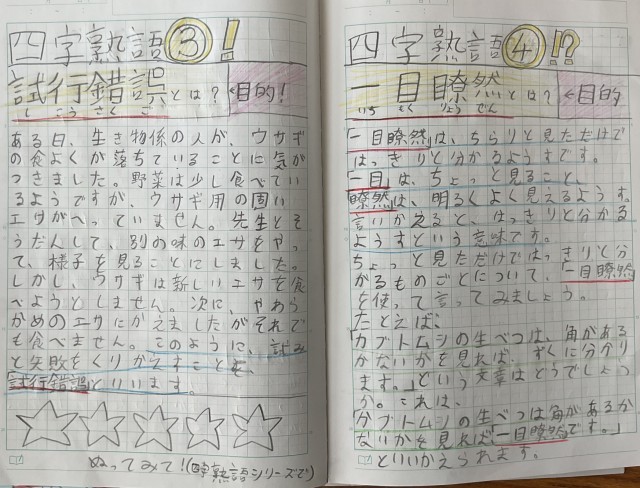 四字熟語③!
試行錯誤とは?
しこうさくご
←目的!
ある日、生き物係の人が、ウサギ
の食よくが落ちていることに気が
つきました。野菜は少し食べてい
るようですが、ウサギ用の固い
エサがへっていません。先生とそ
うだんして、別の味のエサをやっ
て、様子を見ることにしました。
しかし、ウサギは新しいエサを食
べようとしません。次に、やわら
かめのエサにかえましたがそれで
も食べません。このように、試み
と失敗をくりかえすことを、
試行錯誤といいます。
ぬってみて!(四字熟語シリーズで)
四字熟語④!?
一目瞭然とは?
いちもくりょうぜん
←目的
「一目瞭然」は、ちらりと見ただけで
はっきりと分かるようすです。
「一目」は、ちょっと見ること、
瞭然」は、明るくよく見えるようす。
言いかえると、はっきりと分かる
ようすという意味です。
ちょっと見ただけではっきりと分
かるものごとについて、一目瞭然
を使って言ってみましょう。
たとえば、
「カブトムシの生べつは、角がある
かないかを見れば、すぐに分かり
ます。」という文章はどうでしょう
か。これは、
「カブトムシの生べつは角があるか
ないかを見れば「一目瞭然です。」
といいかえられます。